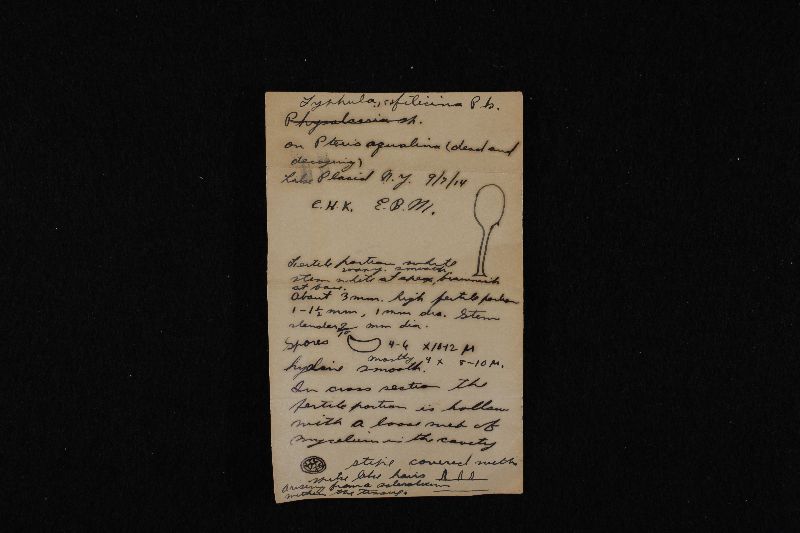 Typhula filicina Pk.
Physalacria sp.
on Pteris aquilina (dead and
decaying)
Lake Placid N.Y. 9/7/14
C.H.K. E.B.M.
Fertile portion white
waxy. smooth
stem white at apex, brownish
at base.
About 3 mm. high fertile portion
1-1½ mm, 1 mm dia. Stem
slender mm dia.
Spores 4-6 x 10-12 µ
mostly 4 x 8-10 µ.
hyaline smooth.
In cross section the
fertile portion is hollow
with a loose web of
mycelium in the cavity
stipe covered with
spike like hairs
arising from a sclerotium
within the tissue.